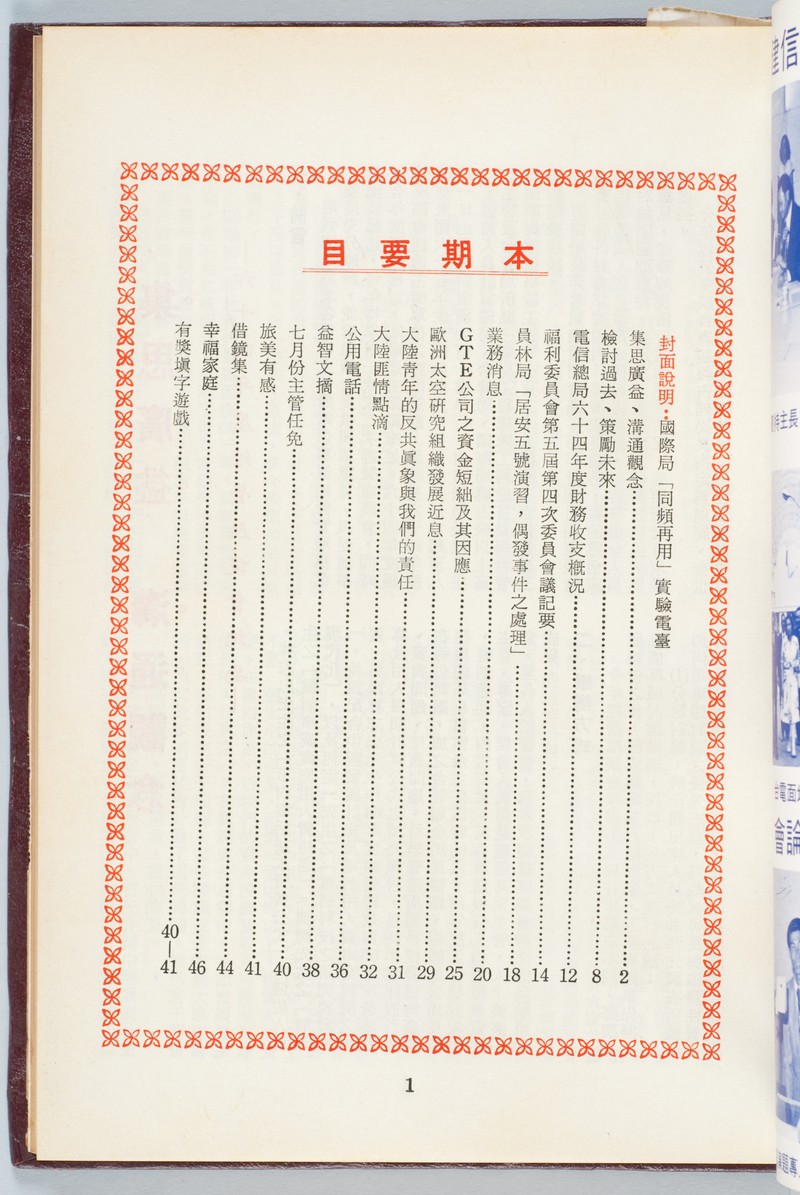 本期要目
封面說明：國際局「同頻再用」實驗電臺
集思廣益、溝通觀念……2
檢討過去、策勵未來……8
電信總局六十四年度財務收支概況……12
福利委員會第五屆第四次委員會議記要……14
員林局「居安五號演習，偶發事件之處理」……18
業務消息……20
GTE公司之資金短絀及其因應……25
歐洲太空研究組織發展近息……29
大陸青年的反共眞象與我們的責任……31
大陸匪情點滴……32
公用電話……36
益智文摘……38
七月份主管任免……40
旅美有感……41
借鏡集……44
幸福家庭……46
有獎塡字遊戲……40—41
1